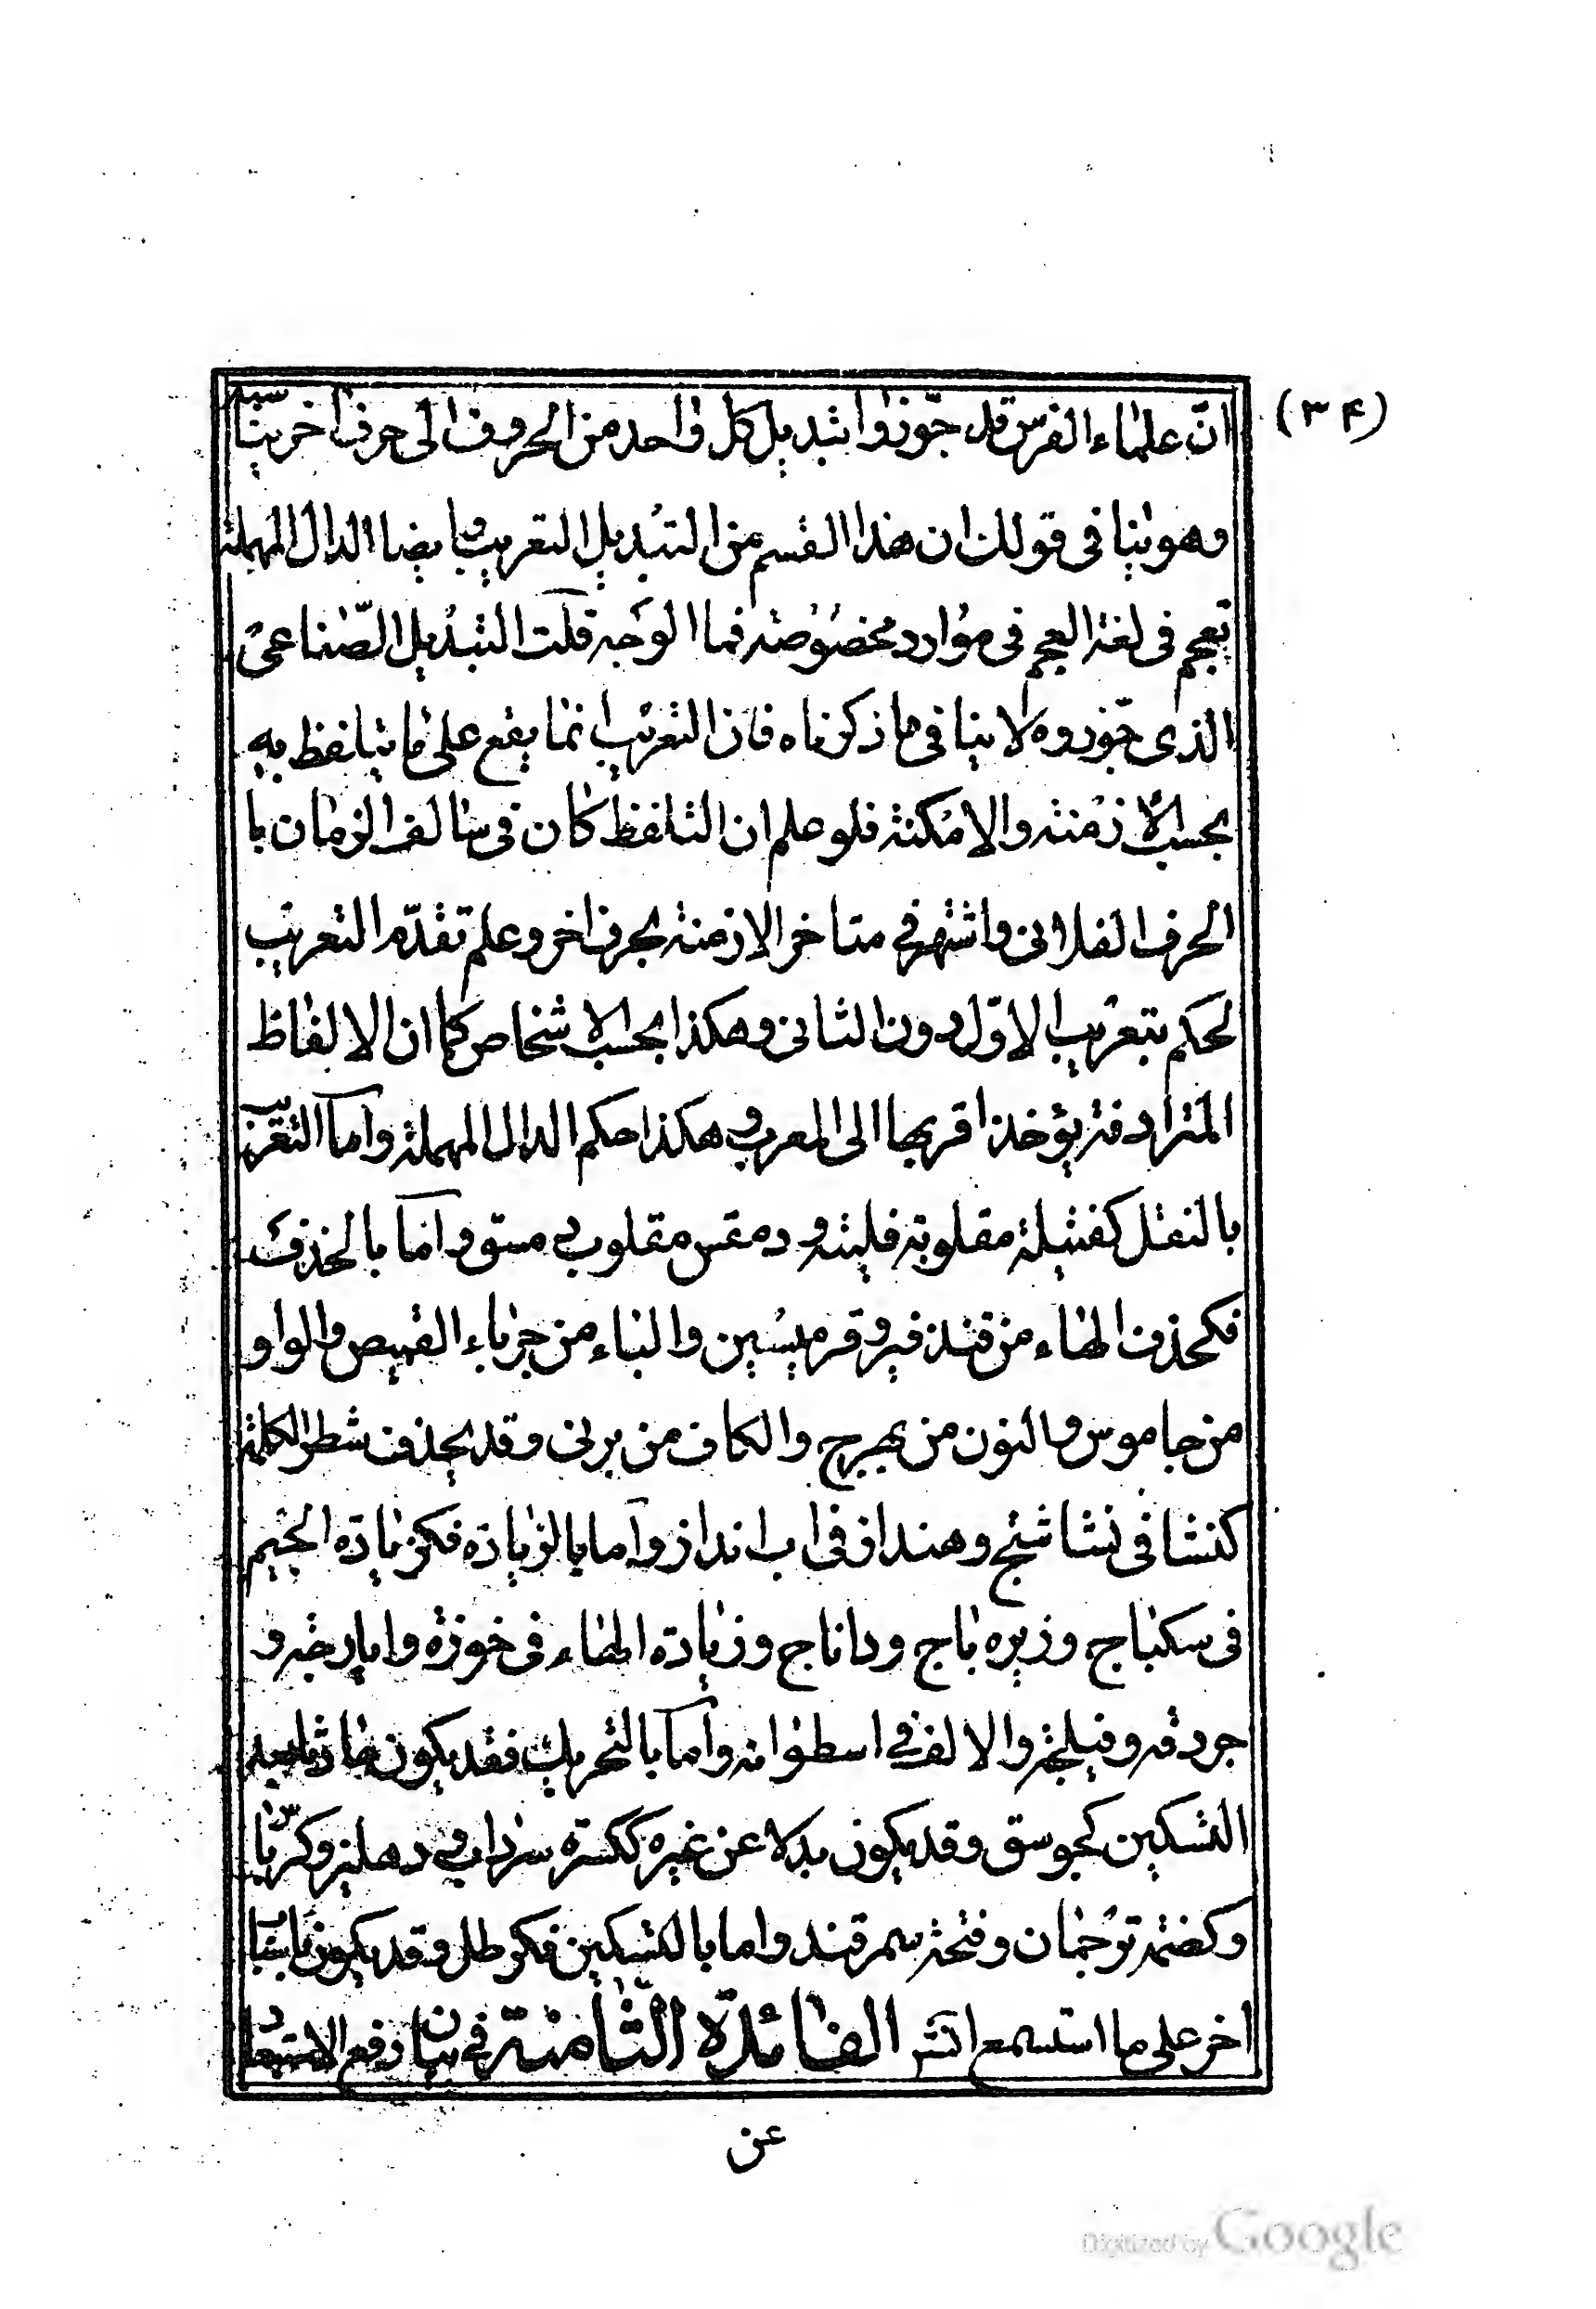 (٣۴)
انّ علماء الفرس قد جوّزوا تبديل كل واحد من الحروف الى حرف اخر يناسبه
وهو ينافى قولك ان هذا القسم من التبديل التعريب وايضا الدال المهملة
تعجم فى لغة العجم فى موارد مخصوصة فما الوجه قلت التبديل الصّناعى
الذى جوّزوه لا ينافى ما ذكرناه فان التعريب انما يقع على ما يتلفظ به
بحسب الازمنة والامكنة فلو علم ان التلفظ كان فى سالف الزمان با
الحرف الفلانى واشتهر فى متاخر الازمنة بحرف اخر وعلم تقدّم التعريب
لحكم بتعريب الاوّل دون الثانى وهكذا بحسب الاشخاص كما ان الالفاظ
المترادفة يؤخذ اقربها الى المعرب وهكذا حكم الدال المهملة واما التعريب
بالنقل كفشيلة مقلوبة فليشه و دمقس مقلوب مستود واما بالحذف
فكحذف الهاء من قندفير وقرميسين والباء من جرباء القميص والواو
من جاموس والنون من بهرج والكاف من برنى وقد يحذف شطر الكلمة
كنشا فى نشاشتج وهنداز فى اب انداز واما بالزيادة فكزيادة الجيم
فى سكباج وزيره باج وداناج وزيادة الهاء فى خوزه وايارجه و
جردقه وفيلجة والالف فى اسطوانه واما بالتحريك فقد يكون
التسكين كجوسق وقد يكون بدلا عن غيره ككسرة سرداب و دهليز وكرّباس
وكضمة ترجمان وفتحة سمرقند واما بالتسكين فكرطل وقد يكون باسباب
اخر على ما استسمع انش الفائدة الثامنة فى بيان رفع الاستبعاد
عن
Digitized by Google